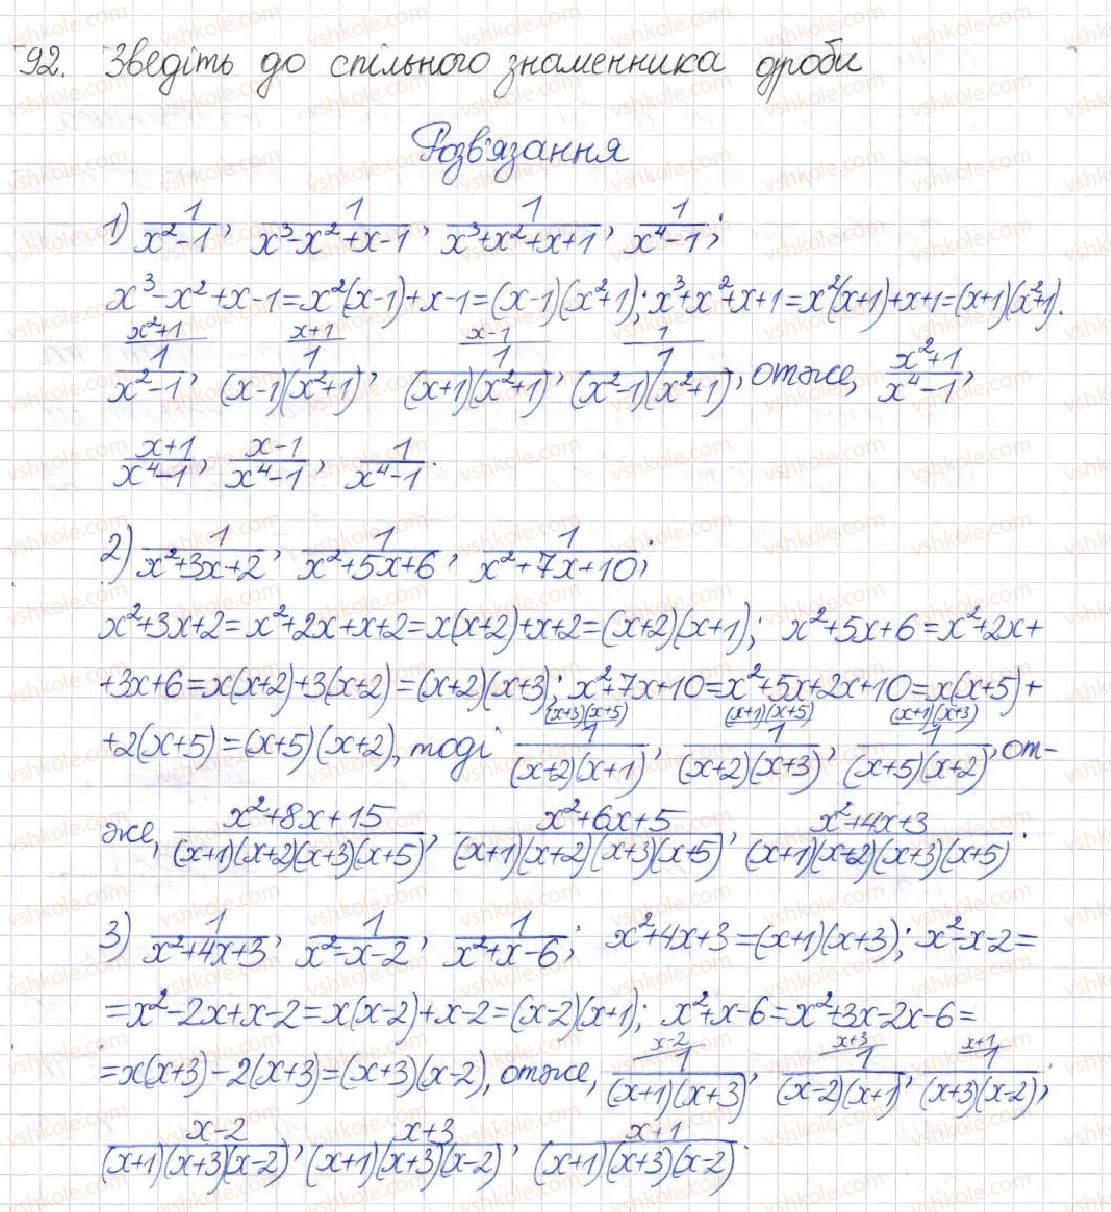 92. Зведіть до спільного знаменника дроби
Розв'язання
1) 1/(x²-1), 1/(x³-x²+x-1), 1/(x³+x²+x+1), 1/(x⁴-1);
x³-x²+x-1=x²(x-1)+x-1=(x-1)(x²+1); x³+x²+x+1=x²(x+1)+x+1=(x+1)(x²+1).
x²+1 x+1 x-1 1
1/(x²-1), 1/((x-1)(x²+1)), 1/((x+1)(x²+1)), 1/((x²-1)(x²+1)), отже, (x²+1)/(x⁴-1),
(x+1)/(x⁴-1), (x-1)/(x⁴-1), 1/(x⁴-1).
2) 1/(x²+3x+2), 1/(x²+5x+6), 1/(x²+7x+10);
x²+3x+2=x²+2x+x+2=x(x+2)+x+2=(x+2)(x+1); x²+5x+6=x²+2x+
+3x+6=x(x+2)+3(x+2)=(x+2)(x+3); x²+7x+10=x²+5x+2x+10=x(x+5)+
(x+3)(x+5) (x+1)(x+5) (x+1)(x+3)
+2(x+5)=(x+5)(x+2), тоді 1/((x+2)(x+1)), 1/((x+2)(x+3)), 1/((x+5)(x+2)), от-
же, (x²+8x+15)/((x+1)(x+2)(x+3)(x+5)), (x²+6x+5)/((x+1)(x+2)(x+3)(x+5)), (x²+4x+3)/((x+1)(x+2)(x+3)(x+5)).
3) 1/(x²+4x+3), 1/(x²-x-2), 1/(x²+x-6); x²+4x+3=(x+1)(x+3); x²-x-2=
=x²-2x+x-2=x(x-2)+x-2=(x-2)(x+1); x²+x-6=x²+3x-2x-6=
x-2 x+3 x+1
=x(x+3)-2(x+3)=(x+3)(x-2), отже, 1/((x+1)(x+3)), 1/((x-2)(x+1)), 1/((x+3)(x-2));
(x-2)/((x+1)(x+3)(x-2)), (x+3)/((x+1)(x+3)(x-2)), (x+1)/((x+1)(x+3)(x-2)).
vshkole.com